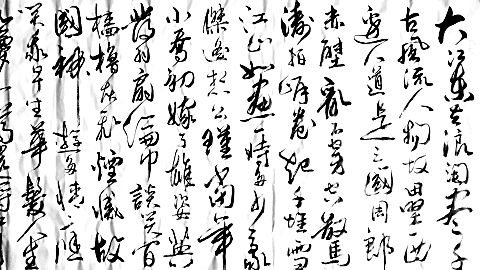 大江东去浪淘尽千
古風流人物故壘西
邊人道是三國周郎
赤壁亂石穿空驚
濤拍岸卷起千堆雪
江山如畫一時多少豪
傑遙想公瑾當年
小喬初嫁了雄姿英
發羽扇綸巾談笑間
檣櫓灰飛煙滅故
國神遊多情應
笑我早生華髮人生